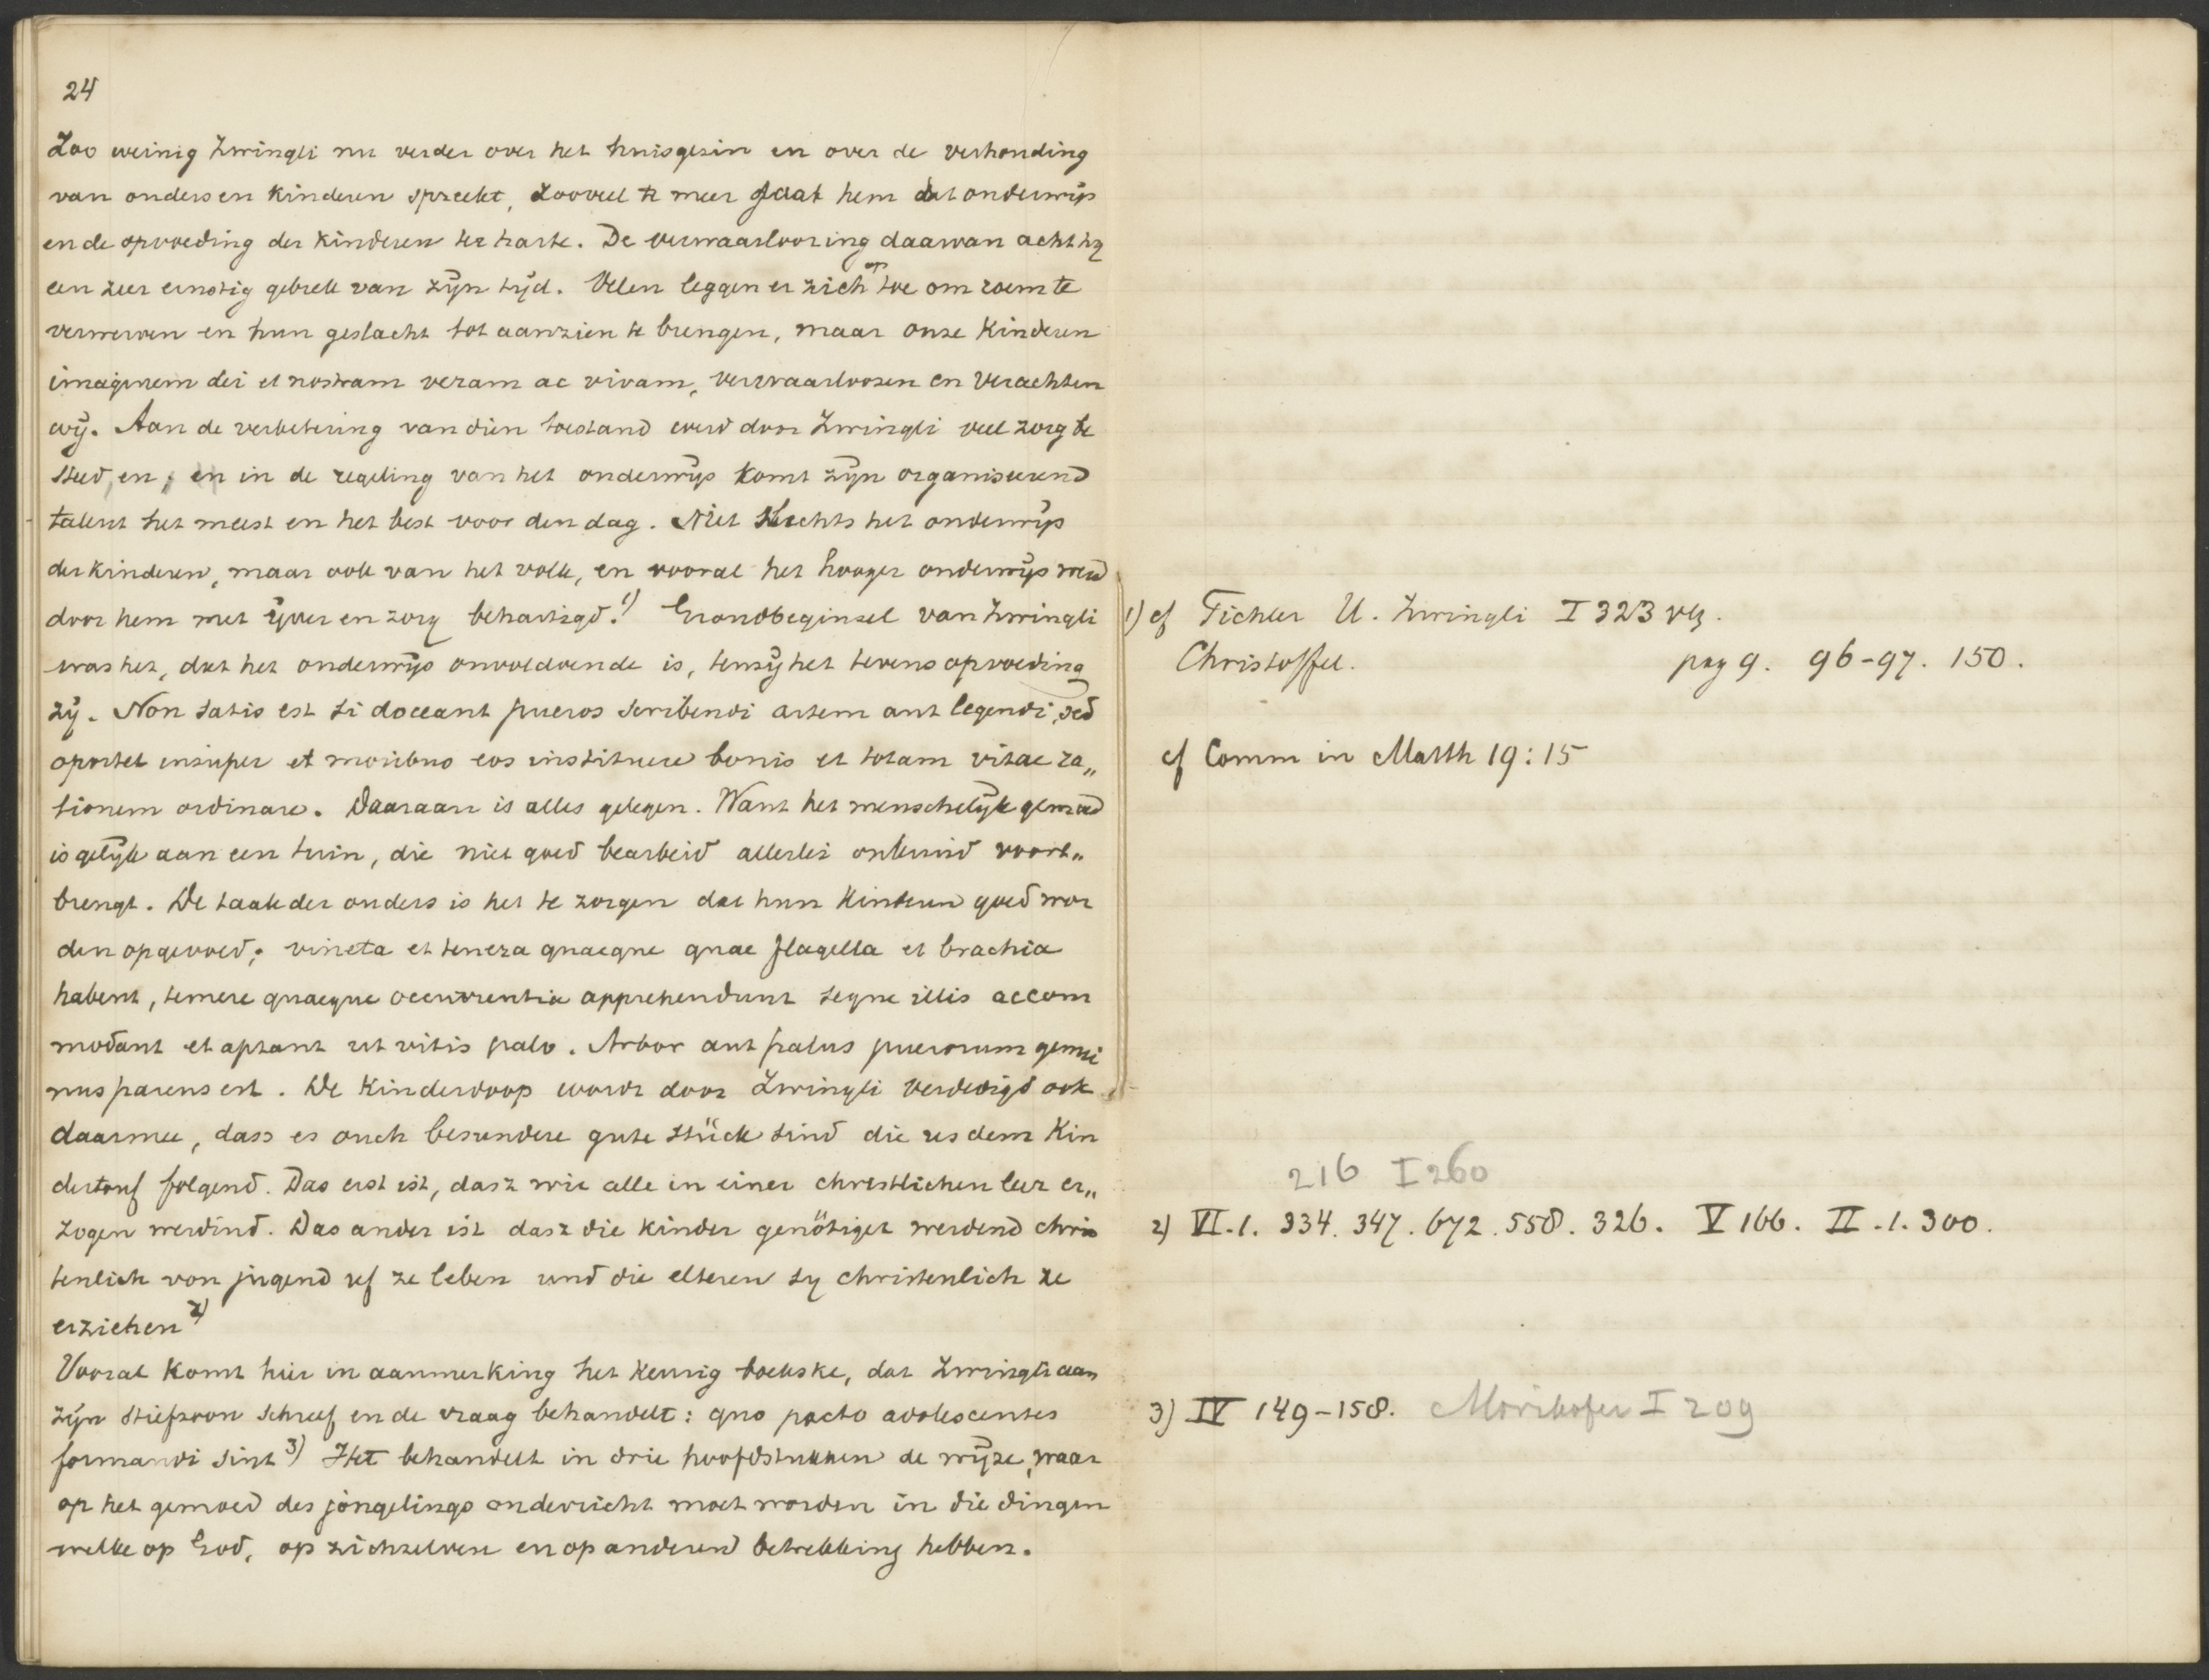 24
Zoo weinig Zwingli nu verder over het huisgezin en over de verhouding
van ouders en kinderen spreekt, zooveel te meer gaat hem het onderwijs
en de opvoeding der kinderen ter harte. De verwaarloozing daarvan acht hij
een zeer ernstig gebrek van zijn tijd. Velen leggen er zich op toe om roem te
verwerven en hun geslacht tot aanzien te brengen, maar onze kinderen
imaginem dei et nostram veram ac vivam, verwaarloozen en verachten
wij. Aan de verbetering van dien toestand werd door Zwingli veel zorg be
steed, en, en in de regeling van het onderwijs komt zijn organiseerend
talent het meest en het best voor den dag. Niet slechts het onderwijs
der kinderen, maar ook van het volk, en vooral het hooger onderwijs werd
door hem met ijver en zorg behartigd. 1) Grondbeginsel van Zwingli
was het, dat het onderwijs onvoldoende is, tenzij het tevens opvoeding
zij. Non satis est si doceant pueros scribendi artem aut legendi, sed
oportet insuper et moribus eos instituere bonis et totam vitae ra„
tionem ordinare. Daaraan is alles gelegen. Want het menschelijk gemoed
is gelijk aan een tuin, die niet goed bearbeid allerlei onkruid voort„
brengt. De taak der ouders is het te zorgen dat hun kinderen goed wor
den opgevoed; vineta et tenera quaeque quae flagella et brachia
habent, temere quaeque occurrentia apprehendunt seque illis accom
modant et aptant ut vitis palo. Arbor aut palus puerorum genui
nus parens est. De Kinderdoop wordt door Zwingli verdedigd ook
daarmee, dass es ouch besundere gute stück sind die us dem Kin
dertouf folgend. Das erst ist, dasz wir alle in einer christlichen leer er„
zogen werdind. Das ander ist dasz die kinder genötiget werdend chris
tenlich von jugend uf ze leben und die elteren sy christenlich ze
erziehen 2)
Vooral komt hier in aanmerking het keurig boekske, dat Zwingli aan
zijn stiefzoon schreef en de vraag behandelt: quo pacto adolescentes
formandi sint 3) Het behandelt in drie hoofdstukken de wijze, waar
op het gemoed des jongelings onderricht moet worden in die dingen
welke op God, op zichzelven en op anderen betrekking hebben.
1) cf Tichler U. Zwingli I 323 vlg.
Christoffel. pag 9. 96-97. 150.
cf Comm in Matth 19:15
216 I 260
2) VI.1. 334. 347. 672. 558. 326. V 166. II.1. 300.
3) IV 149-158. Mörikofer I 209